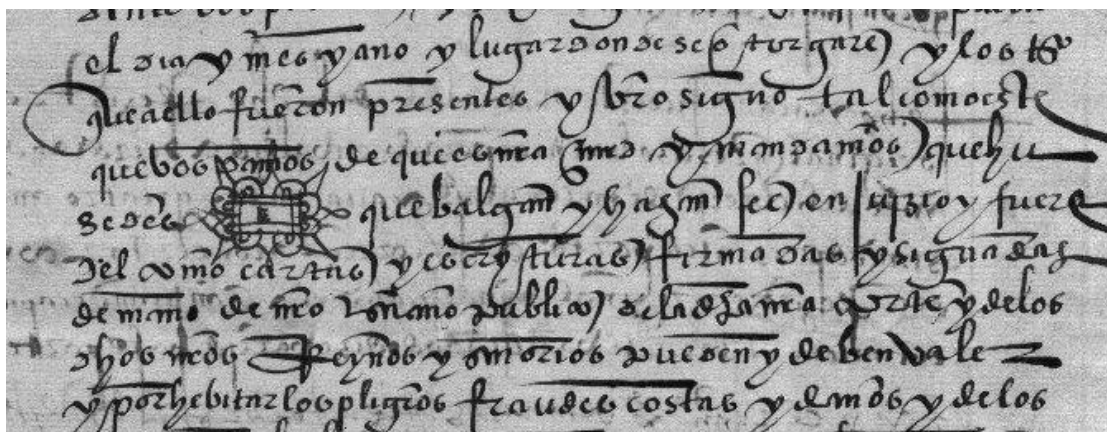 el dia y mes y año y lugar donde se otorgare y los tsº
que a ello fueron presentes y vro signo tal como este
que bos damos de que es nra mrd y mandamos que hu
sedes que balgan y hagan fee en juyzio y fuera
del como cartas y escryturas firmadas y signadas
de mano de nro escriuano publico de la dha nra corte y de los
dhos nros Reynos y señorios pueden y deben vale
y por hebitar los pligros fraudes costas y daños y de los